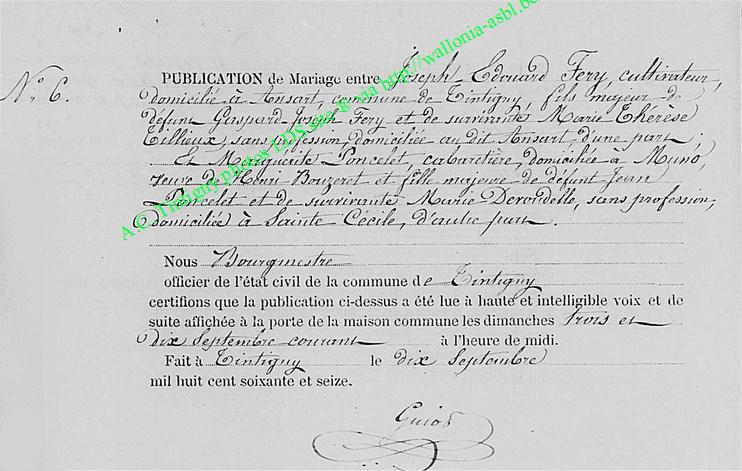 N° 6.
PUBLICATION de Mariage entre Joseph Edouard Fery, cultivateur,
domicilié à Ansart, commune de Tintigny, fils majeur de
défunt Gaspard-Joseph Fery et de survivante Marie Thérèse
Tillieux, sans profession, domiciliée au dit Ansart, d'une part ;
Et Marguérite Poncelet, cabaretière, domiciliée à Muno,
veuve de Henri Bouzeret et fille majeure de défunt Jean
Poncelet et de survivante Marie Deroudelle, sans profession,
domiciliée à Sainte Cécile, d'autre part.
Nous Bourgmestre
officier de l'état civil de la commune de Tintigny
certifions que la publication ci-dessus a été lue à haute et intelligible voix et de
suite affichée à la porte de la maison commune les dimanches trois et
dix Septembre courant à l'heure de midi.
Fait à Tintigny le dix Septembre
mil huit cent soixante et seize.
A.C. Tintigny photos LDS site http://wallonia-asbl.be